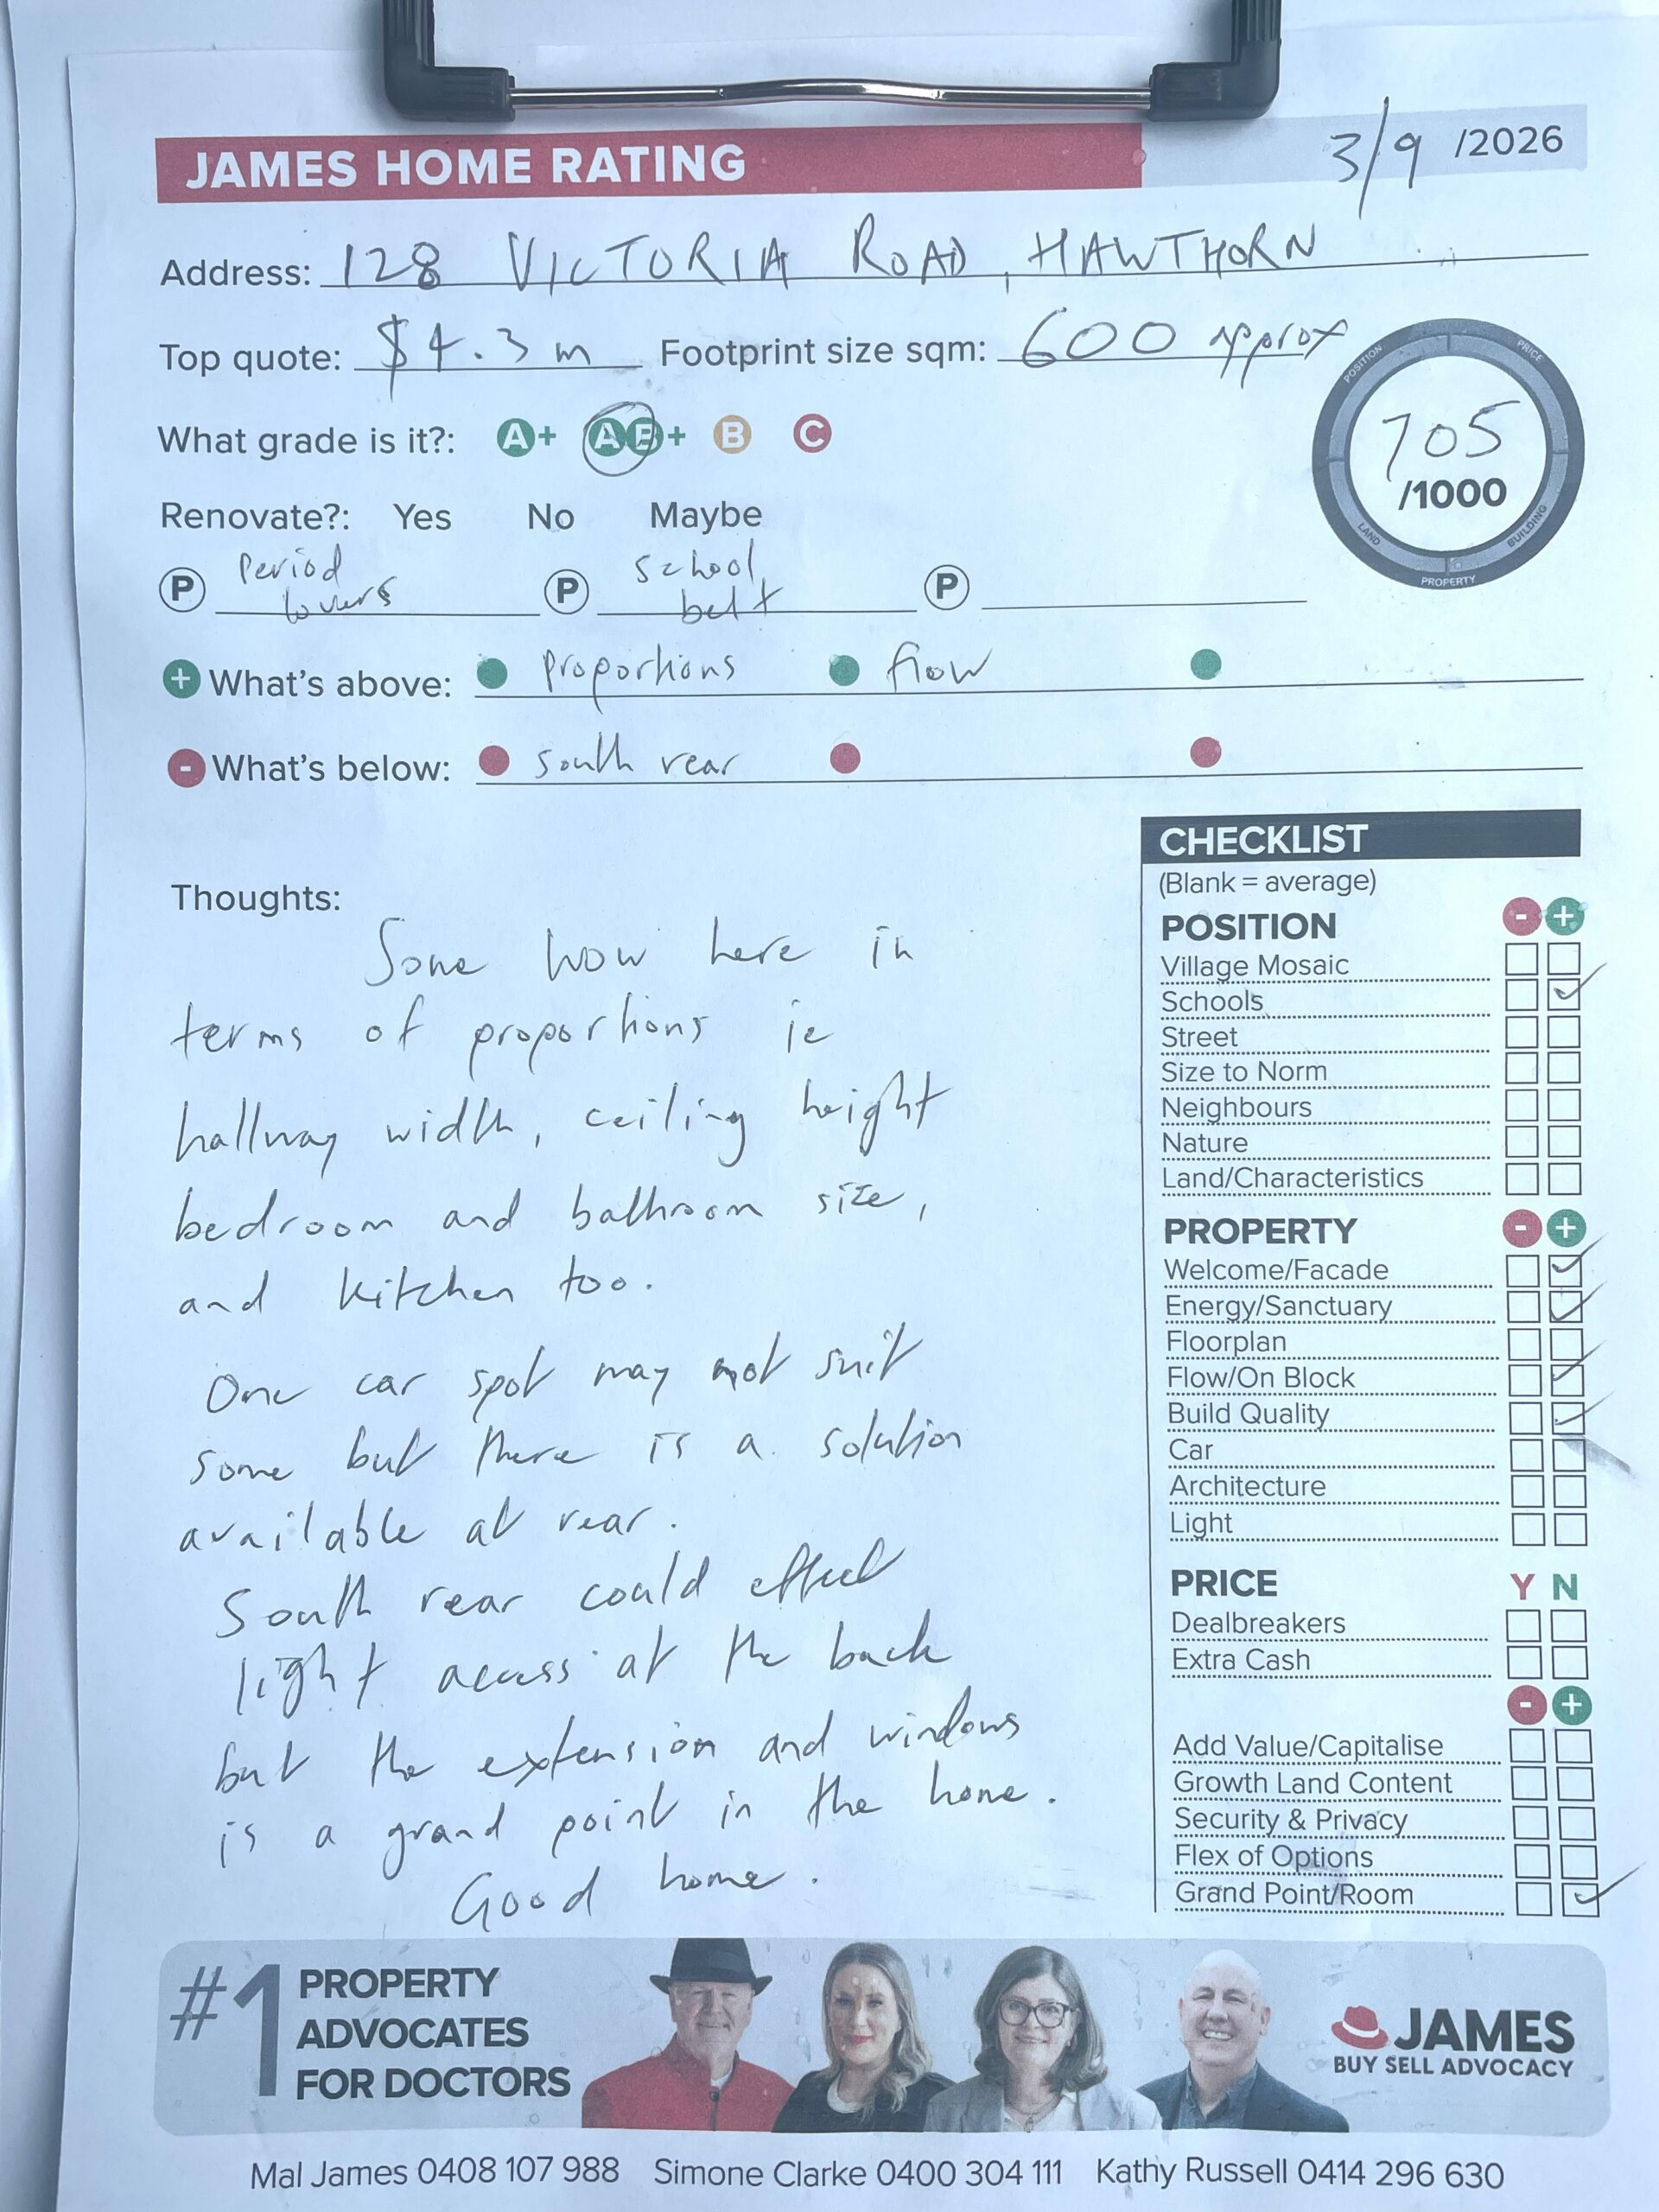 JAMES HOME RATING
3/9 /2026
Address: 128 VICTORIA ROAD, HAWTHORN
Top quote: $4.3m Footprint size sqm: 600 approx
POSITION PRICE BUILDING PROPERTY LAND
705
/1000
What grade is it?: A+ AB+ B C
Renovate?: Yes No Maybe
P Period lovers P school belt P
+ What's above: proportions flow
- What's below: south rear
Thoughts:
Some wow here in
terms of proportions ie
hallway width, ceiling height
bedroom and bathroom size,
and kitchen too.
One car spot may not suit
some but there is a solution
available at rear.
South rear could effect
light access at the back
but the extension and windows
is a grand point in the home.
Good home.
CHECKLIST
(Blank = average)
POSITION - +
Village Mosaic
Schools
Street
Size to Norm
Neighbours
Nature
Land/Characteristics
PROPERTY - +
Welcome/Facade
Energy/Sanctuary
Floorplan
Flow/On Block
Build Quality
Car
Architecture
Light
PRICE Y N
Dealbreakers
Extra Cash
- +
Add Value/Capitalise
Growth Land Content
Security & Privacy
Flex of Options
Grand Point/Room
#1 PROPERTY
ADVOCATES
FOR DOCTORS
JAMES
BUY SELL ADVOCACY
Mal James 0408 107 988 Simone Clarke 0400 304 111 Kathy Russell 0414 296 630